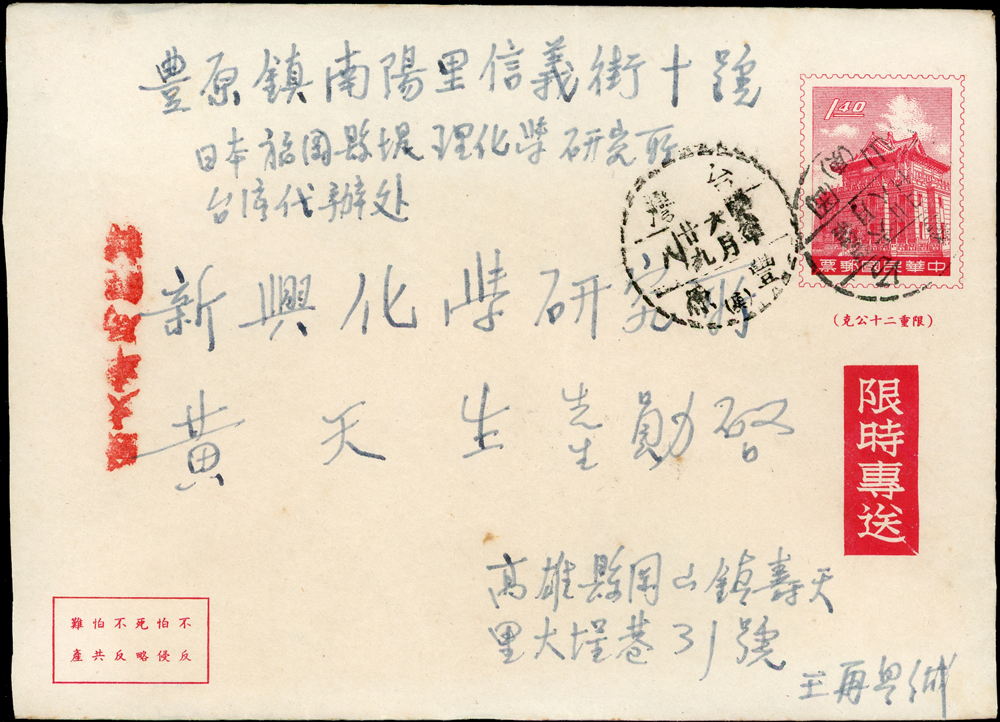 豐原鎮南陽里信義街十號
日本福岡縣堤理化學研究所
台湾代辦处
新興化學研究所
黃天生先生勛啓
1.40
中華民國郵票
(限重二十公克)
台灣
豐原
限時專送
高雄縣岡山鎮壽天
里大埕巷31號
王再
不怕死不怕難
反侵略反共產